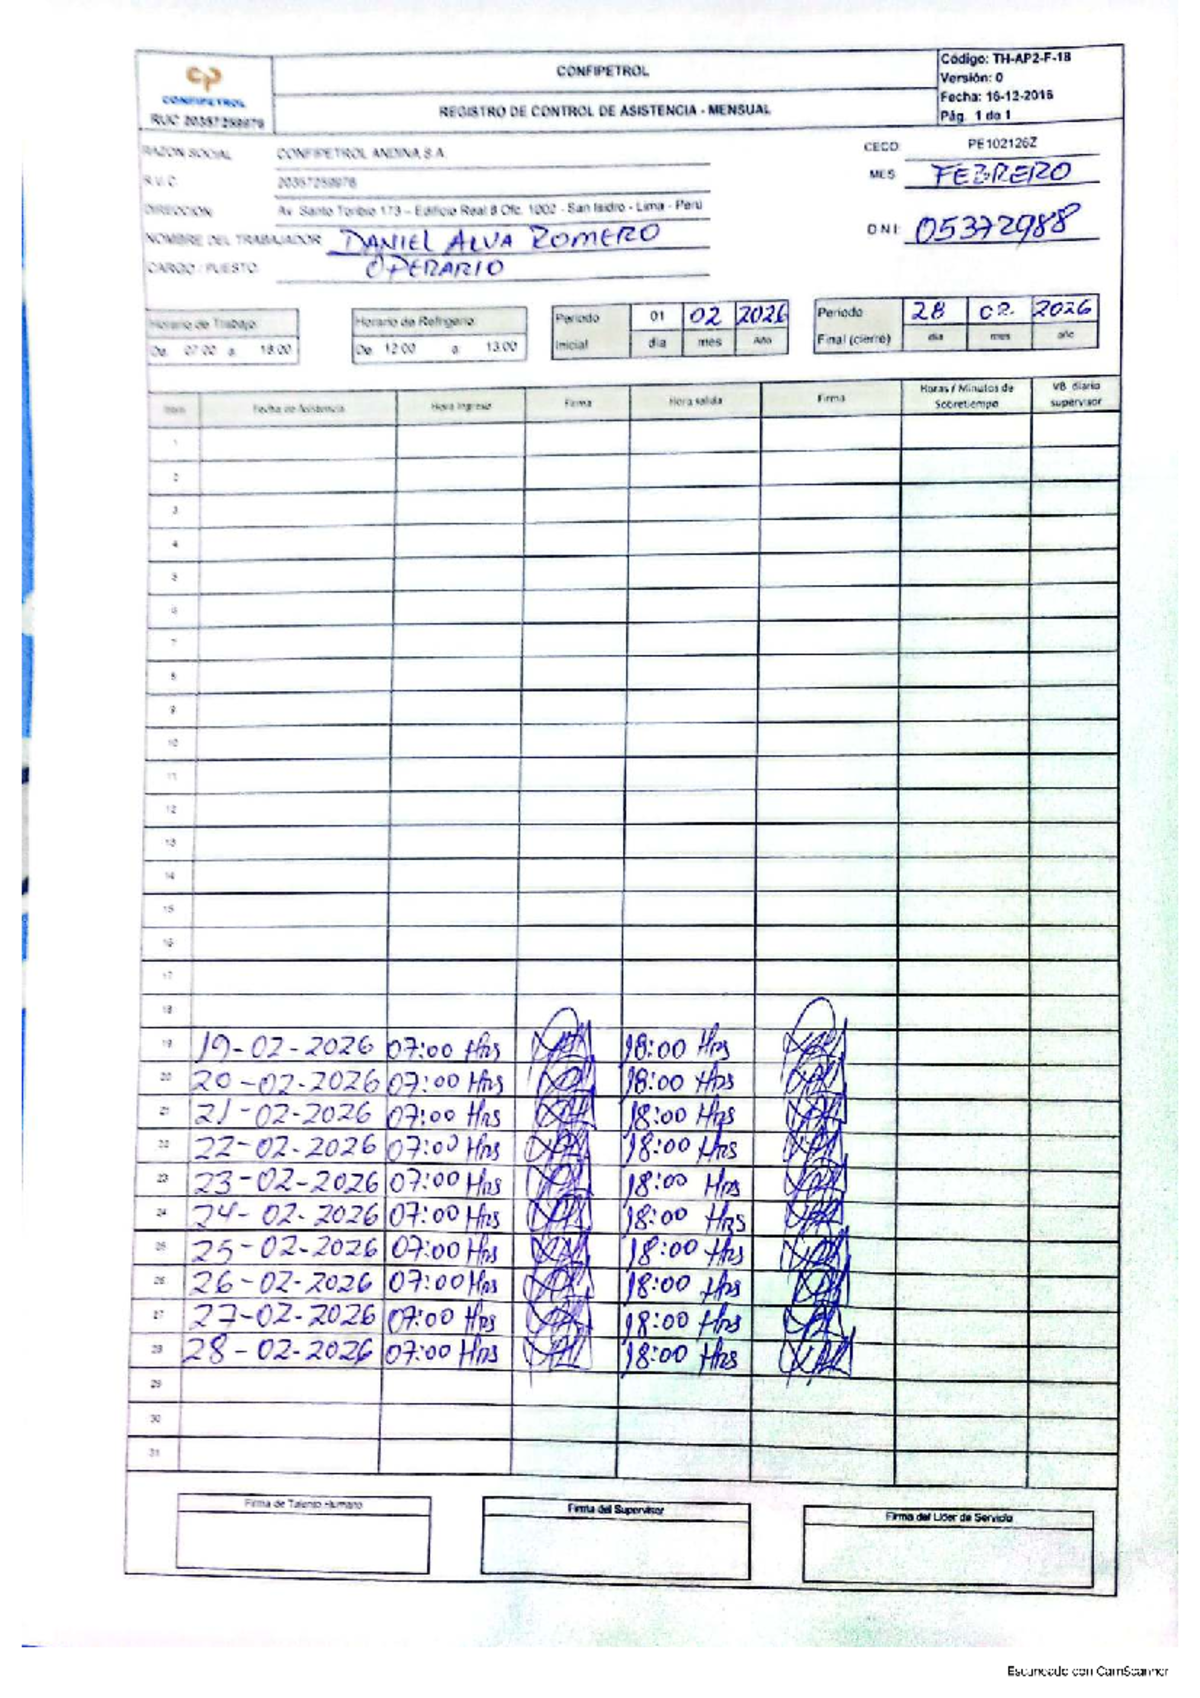 CONFIPETROL
RUC 20357259976
CONFIPETROL
REGISTRO DE CONTROL DE ASISTENCIA - MENSUAL
Código: TH-AP2-F-18
Versión: 0
Fecha: 16-12-2016
Pág. 1 de 1
RAZON SOCIAL CONFIPETROL ANDINA S.A.
CECO PE102126Z
R.U.C. 20357259976
MES FEBRERO
DIRECCION Av. Santo Toribio 173 – Edificio Real 8 Ofc. 1002 - San Isidro - Lima - Perú
NOMBRE DEL TRABAJADOR: DANIEL ALVA ROMERO
DNI: 05372988
CARGO / PUESTO: OPERARIO
Horario de Trabajo
De 07:00 a 18:00
Horario de Refrigerio
De 12:00 a 13:00
Periodo Inicial 01 02 2026
dia mes Año
Periodo Final (cierre) 28 02. 2026
dia mes año
Item Fecha de Asistencia Hora Ingreso Firma Hora salida Firma Horas / Minutos de Sobretiempo VB diario supervisor
1
2
3
4
5
6
7
8
9
10
11
12
13
14
15
16
17
18
19 19-02-2026 07:00 Hrs 18:00 Hrs
20 20-02-2026 07:00 Hrs 18:00 Hrs
21 21-02-2026 07:00 Hrs 18:00 Hrs
22 22-02-2026 07:00 Hrs 18:00 Hrs
23 23-02-2026 07:00 Hrs 18:00 Hrs
24 24-02-2026 07:00 Hrs 18:00 Hrs
25 25-02-2026 07:00 Hrs 18:00 Hrs
26 26-02-2026 07:00 Hrs 18:00 Hrs
27 27-02-2026 07:00 Hrs 18:00 Hrs
28 28-02-2026 07:00 Hrs 18:00 Hrs
29
30
31
Firma de Talento Humano
Firma del Supervisor
Firma del Lider de Servicio
Escaneado con CamScanner